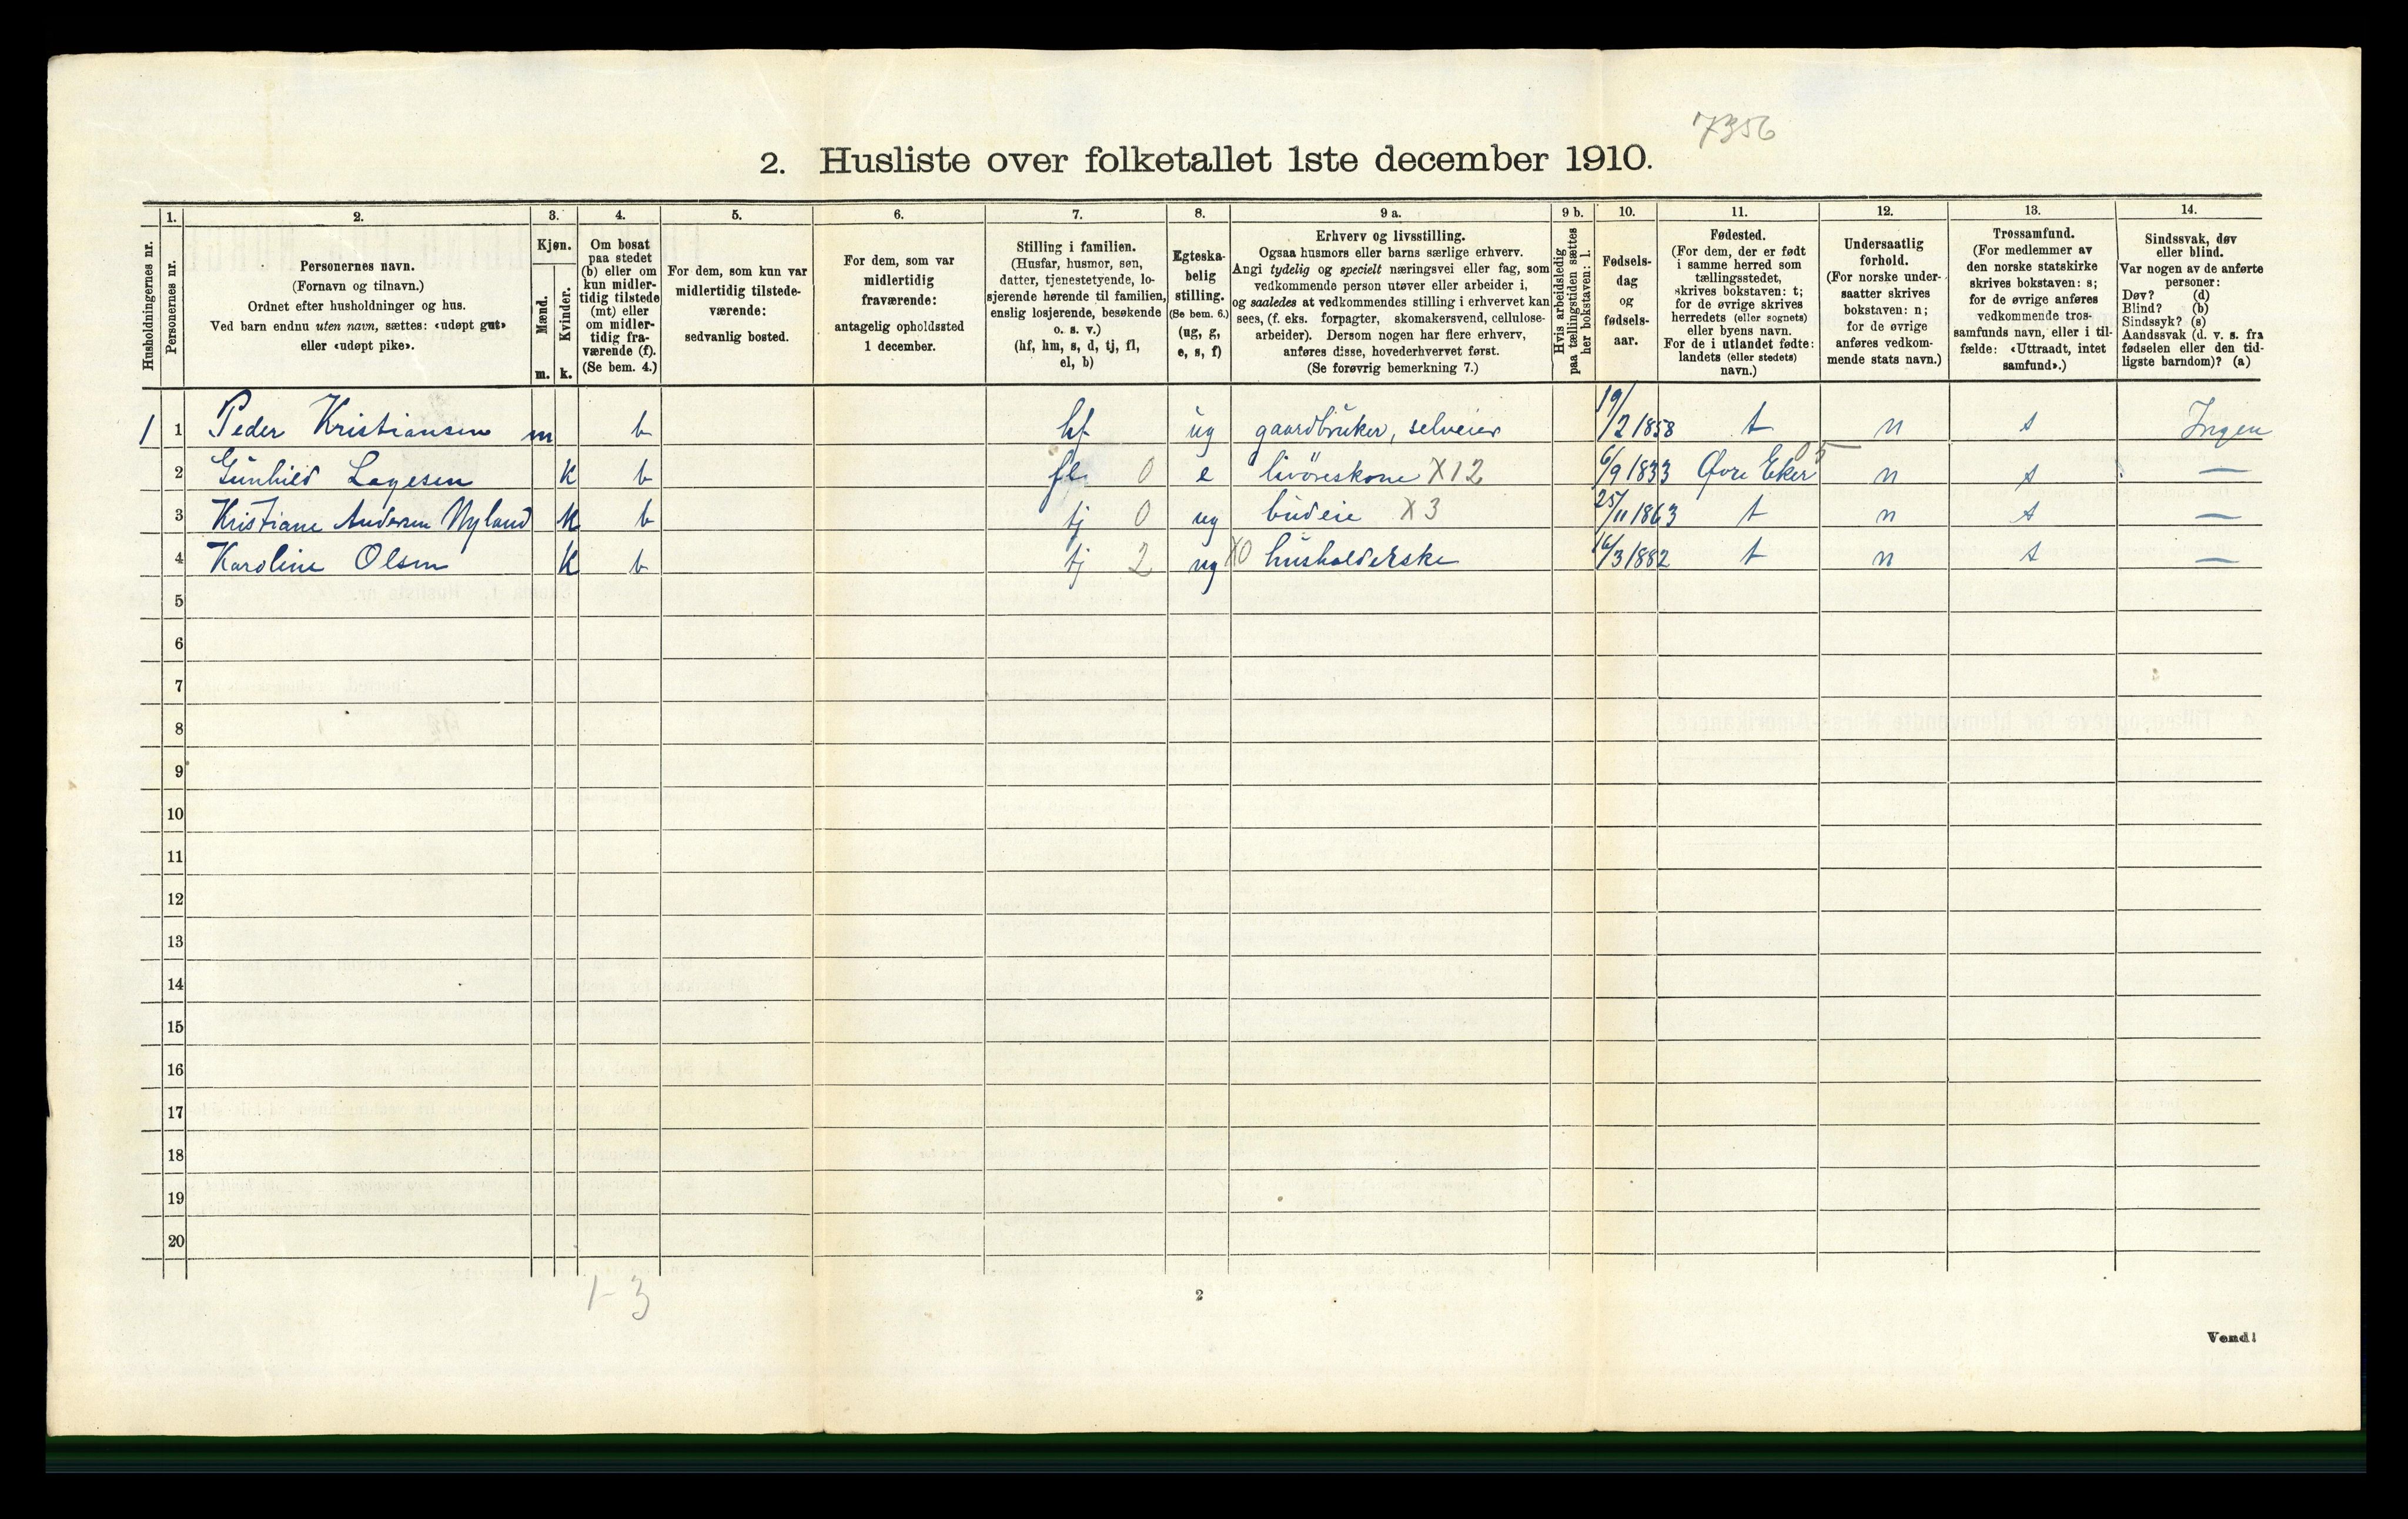 7356
2. Husliste over folketallet 1ste december 1910.
Husholdningernes nr.
1.
Personernes nr.
2.
Personernes navn.
(Fornavn og tilnavn.)
Ordnet efter husholdninger og hus.
Ved barn endnu uten navn, sættes: «udøpt gut»
eller «udøpt pike».
3.
Kjøn.
Mænd.
Kvinder.
m. k.
4.
Om bosat
paa stedet
(b) eller om
kun midler-
tidig tilstede
(mt) eller
om midler-
tidig fra-
værende (f).
(Se bem. 4.)
5.
For dem, som kun var
midlertidig tilstede-
værende:
sedvanlig bosted.
6.
For dem, som var
midlertidig
fraværende:
antagelig opholdssted
1 december.
7.
Stilling i familien.
(Husfar, husmor, søn,
datter, tjenestetyende, lo-
sjerende hørende til familien,
enslig losjerende, besøkende
o. s. v.)
(hf, hm, s, d, tj, fl,
el, b)
8.
Egteska-
belig
stilling.
(Se bem. 6.)
(ug, g,
e, s, f)
9 a.
Erhverv og livsstilling.
Ogsaa husmors eller barns særlige erhverv.
Angi tydelig og specielt næringsvei eller fag, som
vedkommende person utøver eller arbeider i,
og saaledes at vedkommendes stilling i erhvervet kan
sees, (f. eks. forpagter, skomakersvend, cellulose-
arbeider). Dersom nogen har flere erhverv,
anføres disse, hovederhvervet først.
(Se forøvrig bemerkning 7.)
9 b.
Hvis arbeidsledig
paa tællingstiden sættes
her bokstaven: l.
10.
Fødsels-
dag
og
fødsels-
aar.
11.
Fødested.
(For dem, der er født
i samme herred som
tællingsstedet,
skrives bokstaven: t;
for de øvrige skrives
herredets (eller sognets)
eller byens navn.
For de i utlandet fødte:
landets (eller stedets)
navn.)
12.
Undersaatlig
forhold.
(For norske under-
saatter skrives
bokstaven: n;
for de øvrige
anføres vedkom-
mende stats navn.)
13.
Trossamfund.
(For medlemmer av
den norske statskirke
skrives bokstaven: s;
for de øvrige anføres
vedkommende tros-
samfunds navn, eller i til-
fælde: «Uttraadt, intet
samfund».)
14.
Sindssvak, døv
eller blind.
Var nogen av de anførte
personer:
Døv? (d)
Blind? (b)
Sindssyk? (s)
Aandssvak (d. v. s. fra
fødselen eller den tid-
ligste barndom)? (a)
1 1 Peder Kristiansen m b hf ug gaardbruker, selveier 19/2 1858 t n s Ingen
2 Gunhild Lagesen k b fl 0 e livøreskone X12 6/9 1833 Øvre Eker 05 n s —
3 Kristiane Andersen Nyland k b tj 0 ug budeie X3 25/11 1863 t n s —
4 Karoline Olsen k b tj 2 ug X0 husholderske 16/3 1882 t n s —
5
6
7
8
9
10
11
12
13
14
15
16
17
18
19
20
1-3
2
Vend!